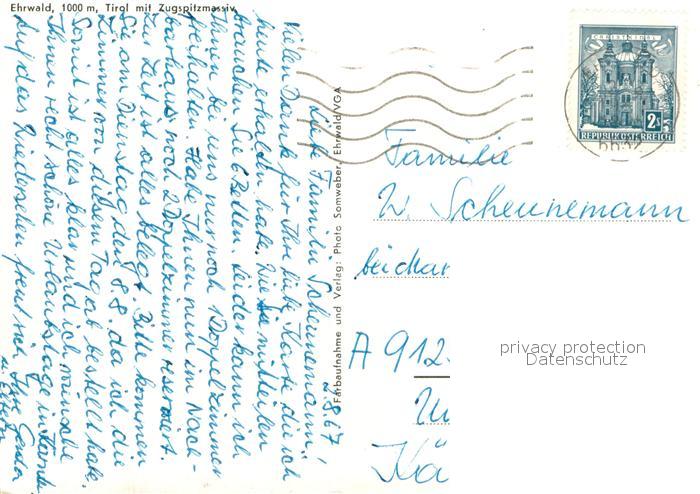 Ehrwald, 1000 m, Tirol mit Zugspitzmassiv
2.8.67
Liebe Familie Scheunemann!
Vielen Dank für Ihre liebe Karte die ich
heute erhalten habe. Wie Sie mitteilen
brauchen Sie 6 Betten. Leider kann ich
Ihnen bei uns nur noch 1 Doppelzimmer
freihalten. Habe Ihnen nun im Nach-
barhaus noch 2 Doppelzimmer reserviert.
Zur Zeit ist alles belegt. Bitte kommen
Sie am Dienstag den 8.8. da ich die
Zimmer von diesem Tag ab bestellt habe.
Somit ist alles klar und ich wünsche
Ihnen recht schöne Urlaubstage in Kärnten
Auf das Wiedersehen freut sich Ihre
Farbaufnahme und Verlag: Photo Somweber, Ehrwald/VGA
CHRISTKINDL
2 S
REPUBLIK ÖSTERREICH
Familie
W. Scheunemann
bei
A 912
Kä
privacy protection
Datenschutz